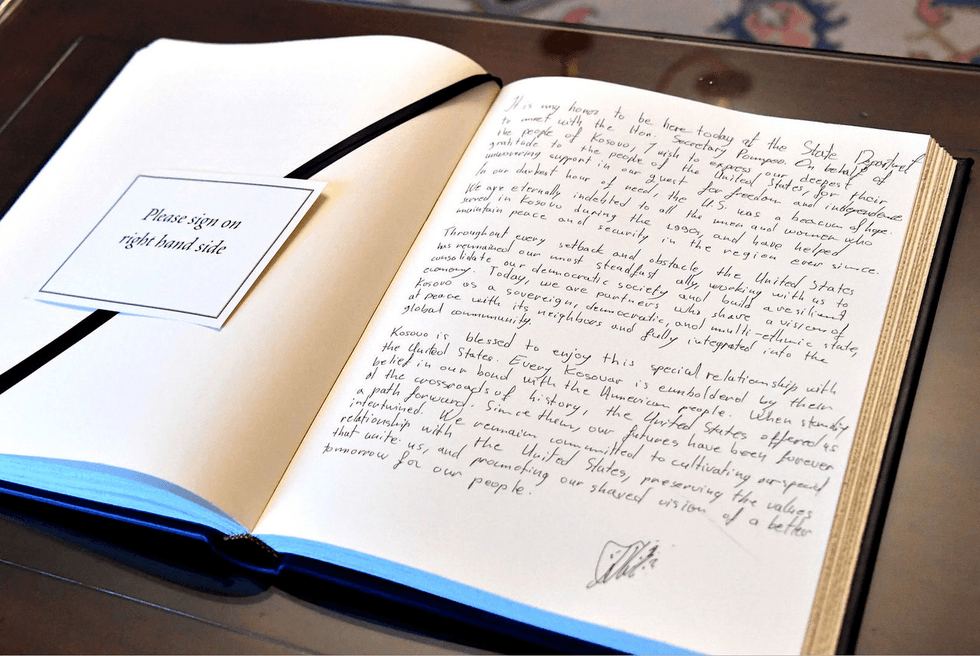 Please sign on
right hand side
It is my honor to be here today at the State Department
to meet with the Hon. Secretary Pompeo. On behalf of
the people of Kosovo, I wish to express our deepest
gratitude to the people of the United States, for their
unwavering support in our quest for freedom and independence
In our darkest hour of need, the U.S. was a beacum of hope.
We are eternally indebted to all the men and women who
served in Kosovo during the 1990s, and have helped
maintain peace and security in the region ever since.
Throughout every setback and obstacle, the United States
has remained our most steadfast ally, working with us to
consolidate our democratic society and build a resilient
economy. Today, we are partners who share a vision of
Kosovo as a sovereign, democratic, and multi-ethnic state,
at peace with its neighbors and fully integrated into the
global community.
Kosovo is blessed to enjoy this special relationship with
the United States. Every Kosovar is emboldened by them
belief in our bond with the American people. When standing
at the crossroads of history, the United States offered us
a path forward. Since then, our futures have been forever
intertwined. We remain committed to cultivating our special
relationship with the United States, preserving the values
that unite us, and promoting our shared vision of a better
tomorrow for our people.